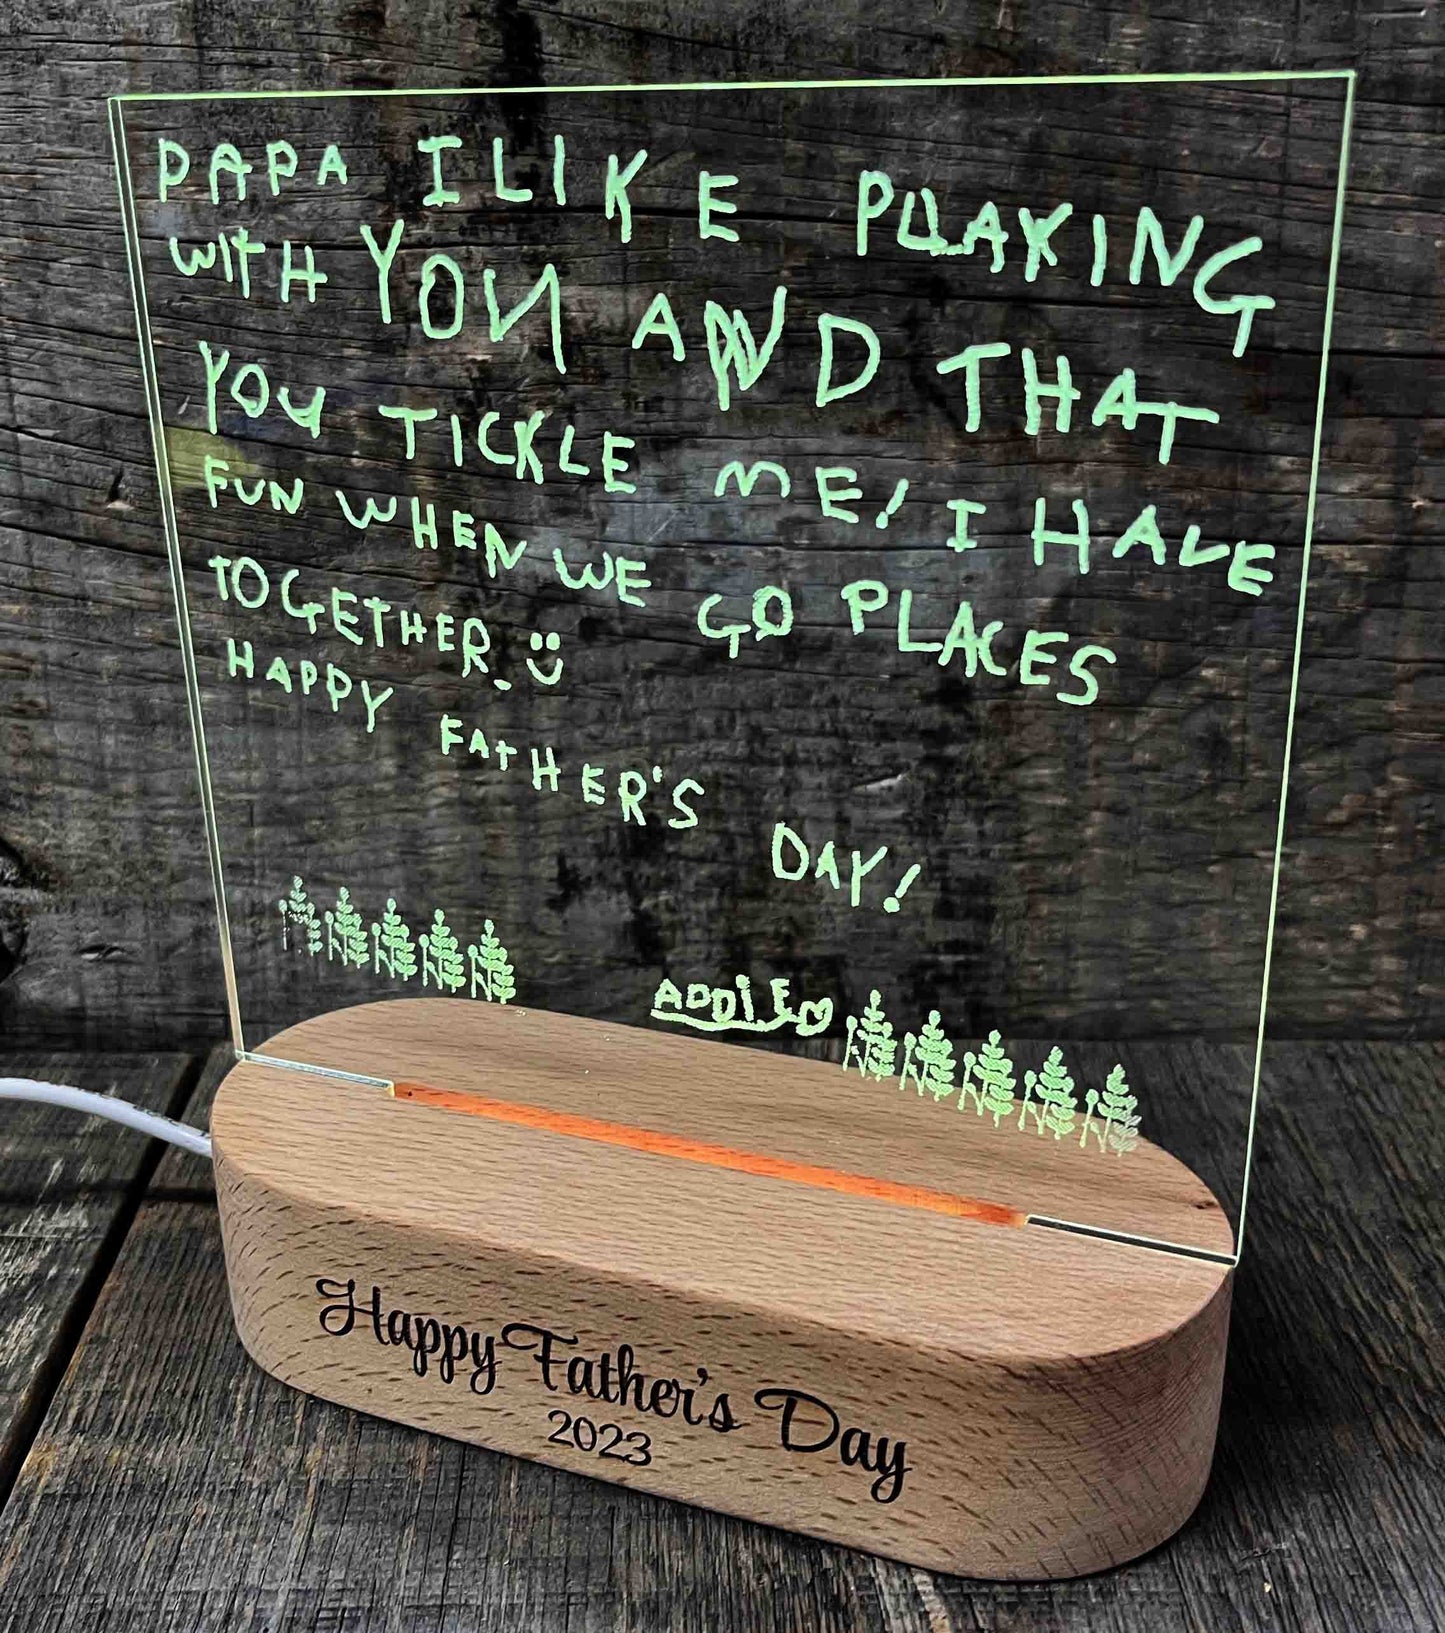 PAPA I LIKE PLAKING
WITH YOU AND THAT
YOU TICKLE ME! I HAVE
FUN WHEN WE GO PLACES
TOGETHER. :)
HAPPY FATHER'S DAY!
ADDIE
Happy Father's Day
2023